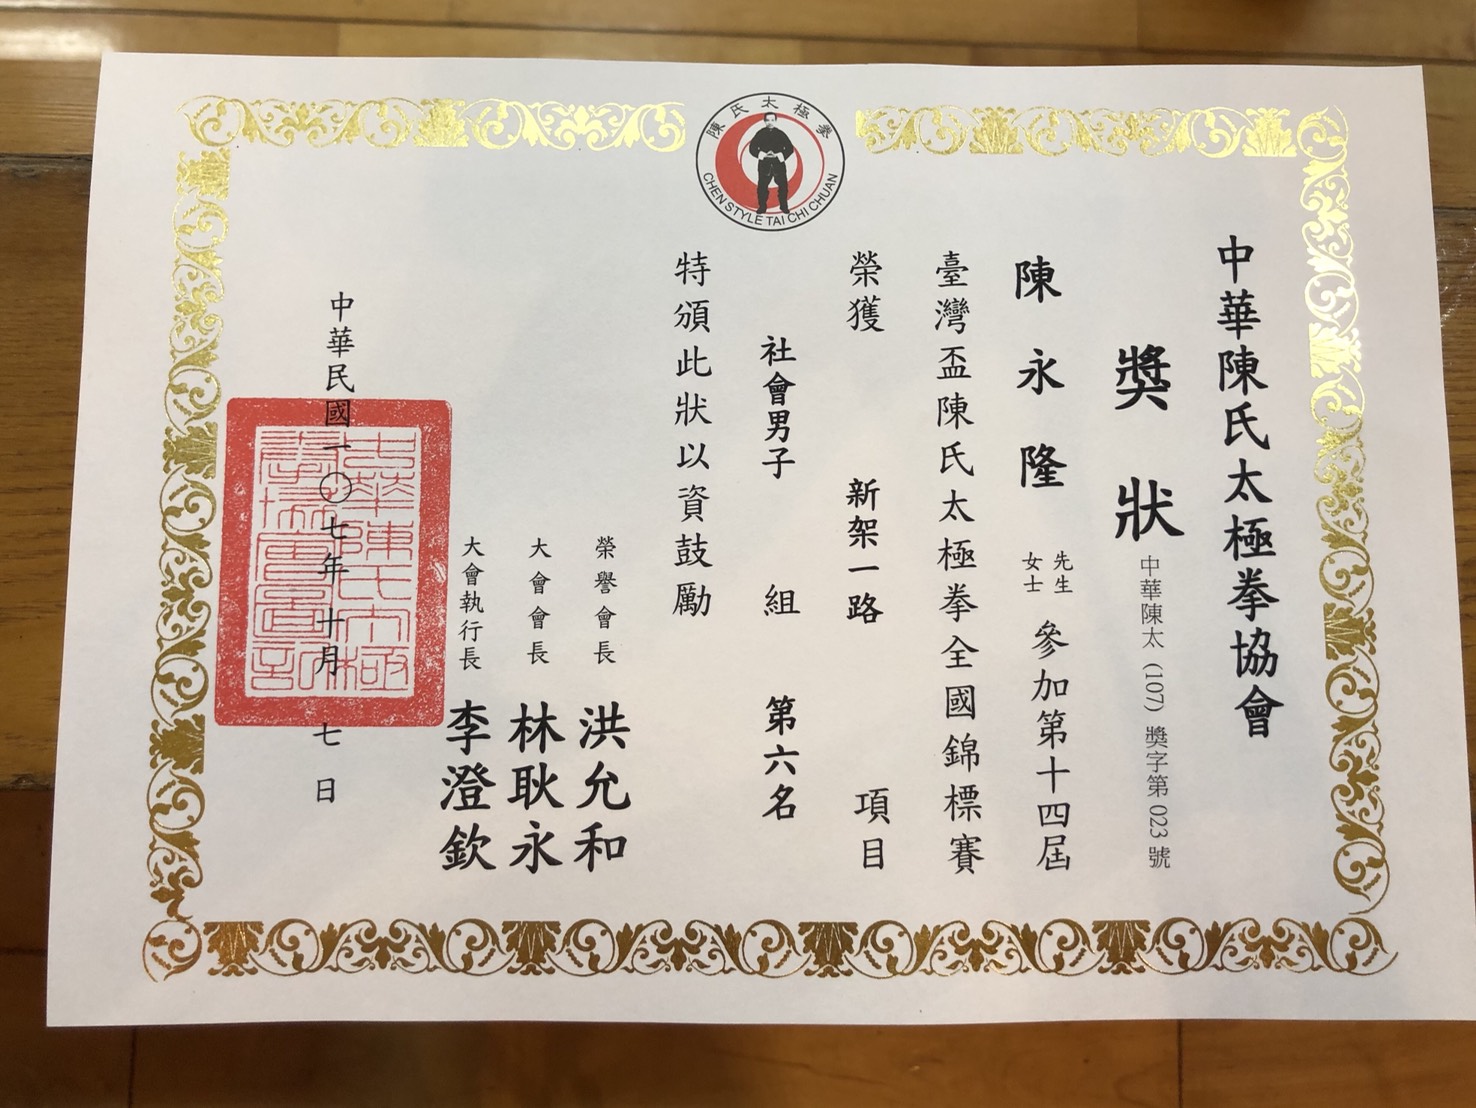 陳氏太極拳
CHEN STYLE TAI CHI CHUAN
中華陳氏太極拳協會
獎狀
中華陳太 (107) 獎字第 023 號
陳永隆 先生 女士 參加第十四屆
臺灣盃陳氏太極拳全國錦標賽
榮獲 新架一路 項目
社會男子 組 第六名
特頒此狀以資鼓勵
榮譽會長 洪允和
大會會長 林耿永
大會執行長 李澄欽
中華民國一〇七年 十月 七 日
中華陳氏太極
拳協會圖記